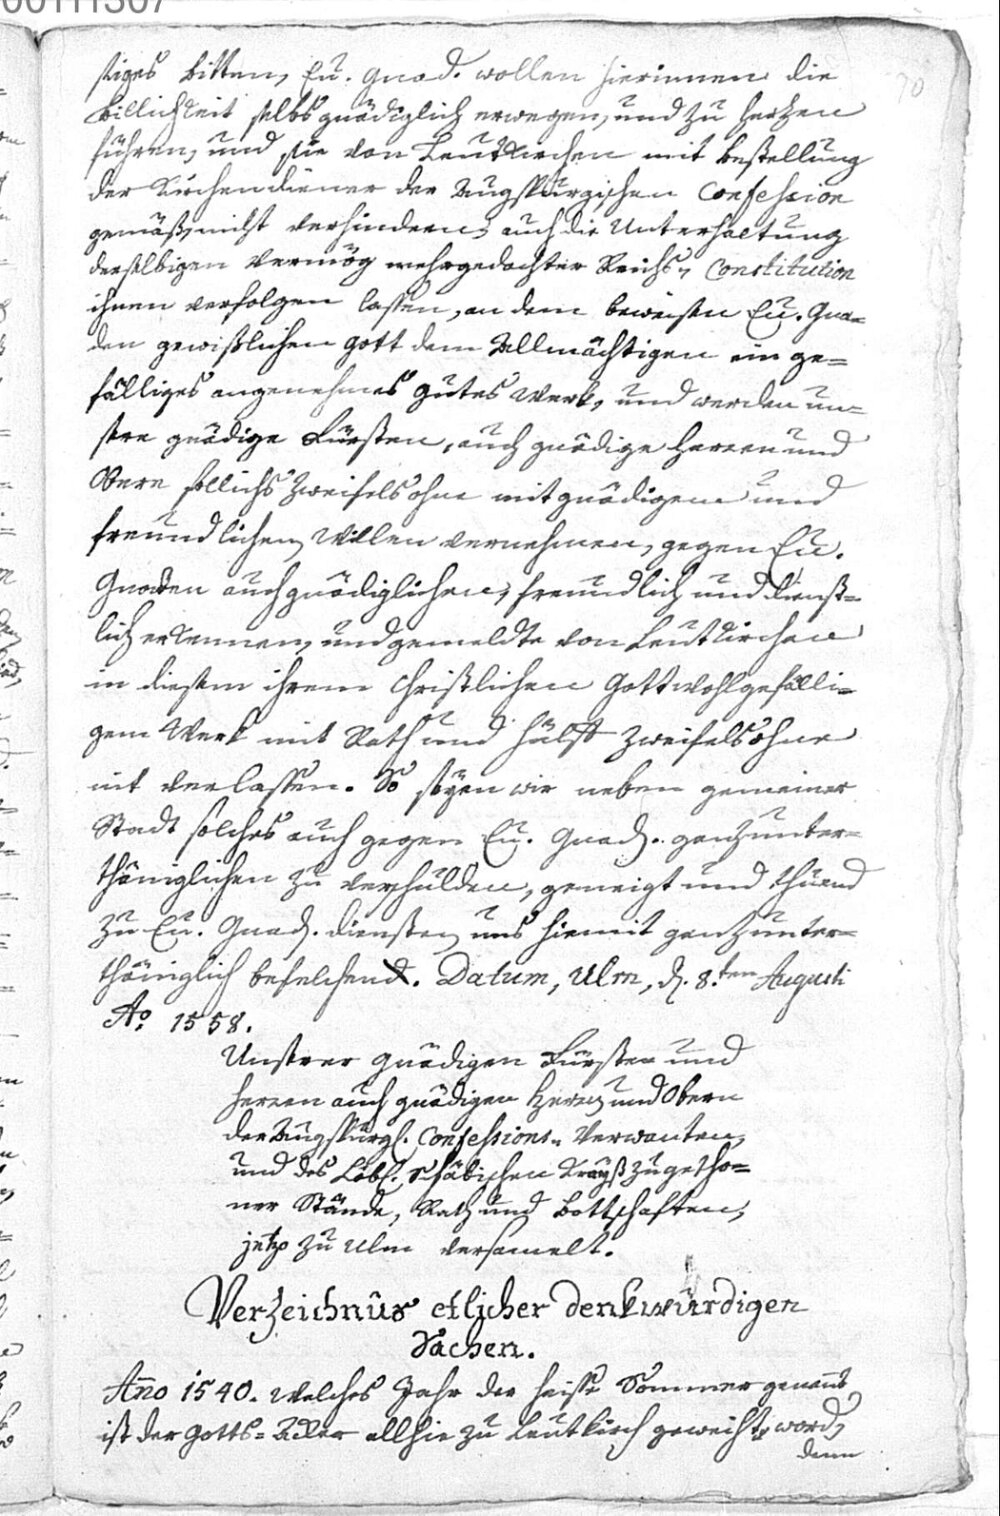 00111307
70
stiges bitten, Eu. Gnad. wollen hierinnen die
Billichkeit selbs gnädiglich erwegen, und zu Herzen
führen, und sie von Leutkirchen mit Bestellung
der Kirchendiener der Augspurgischen Confession
gemäß, nicht verhindern, auch die Unterhaltung
derselbigen vermög mehrgedachter Reichs-Constitution
ihnen verfolgen lassen, an dem beweisen Eu. Gna=
den gewißlichen Gott dem Allmächtigen ein ge=
fälliges angenehmes gutes Werk, und werden un=
sere gnädige Fürsten, auch gnädige Herren und
Obere sollichs Zweifelsohne mit gnädigem und
freundlichem Willen vernehmen, gegen Eu.
Gnaden auch gnädiglichen, freundlich und dienst=
lich erkennen, und gemeldte von Leutkirchen
in diesem ihrem Christlichen Gottwohlgefälli=
gem Werk mit Rath und Hülff Zweifelsohne
nit verlassen. So seyen wir neben gemeiner
Stadt solches auch gegen Eu. Gnad. ganz unter=
thäniglichen zu verschulden, geneigt und thuend
zu Eu. Gnad. diensten uns hiemit ganz unter=
thäniglich befelchend. Datum, Ulm, d. 8.ten Augusti
Ao. 1558.
Unserer gnädigen Fürsten und
Herren auch gnädigen Herren und Obern
der Augspurgl. Confessions-Verwanten,
und des Löbl. Schäbischen Krayß zugetho=
ner Stände, Räth und Bottschaften,
jetzo zu Ulm versamelt.
Verzeichnus etlicher denkwürdigen
Sachen.
Anno 1540. welches Jahr der heisse Sommer genannt,
ist der Gotts=Acker allhie zu Leutkirch geweiht word,
denn